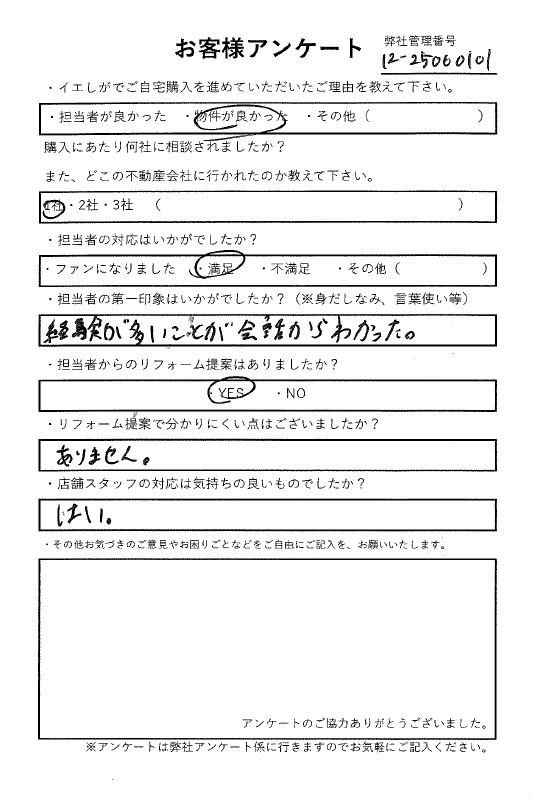 お客様アンケート
弊社管理番号
12-25060101
・イエしがでご自宅購入を進めていただいたご理由を教えて下さい。
・担当者が良かった ・物件が良かった ・その他（ ）
購入にあたり何社に相談されましたか？
また、どこの不動産会社に行かれたのか教えて下さい。
1社・2社・3社 （ ）
・担当者の対応はいかがでしたか？
・ファンになりました ・満足 ・不満足 ・その他（ ）
・担当者の第一印象はいかがでしたか？（※身だしなみ、言葉使い等）
経験が多いことが会話からわかった。
・担当者からのリフォーム提案はありましたか？
・YES ・NO
・リフォーム提案で分かりにくい点はございましたか？
ありません。
・店舗スタッフの対応は気持ちの良いものでしたか？
はい。
・その他お気づきのご意見やお困りごとなどをご自由にご記入を、お願いいたします。
アンケートのご協力ありがとうございました。
※アンケートは弊社アンケート係に行きますのでお気軽にご記入ください。